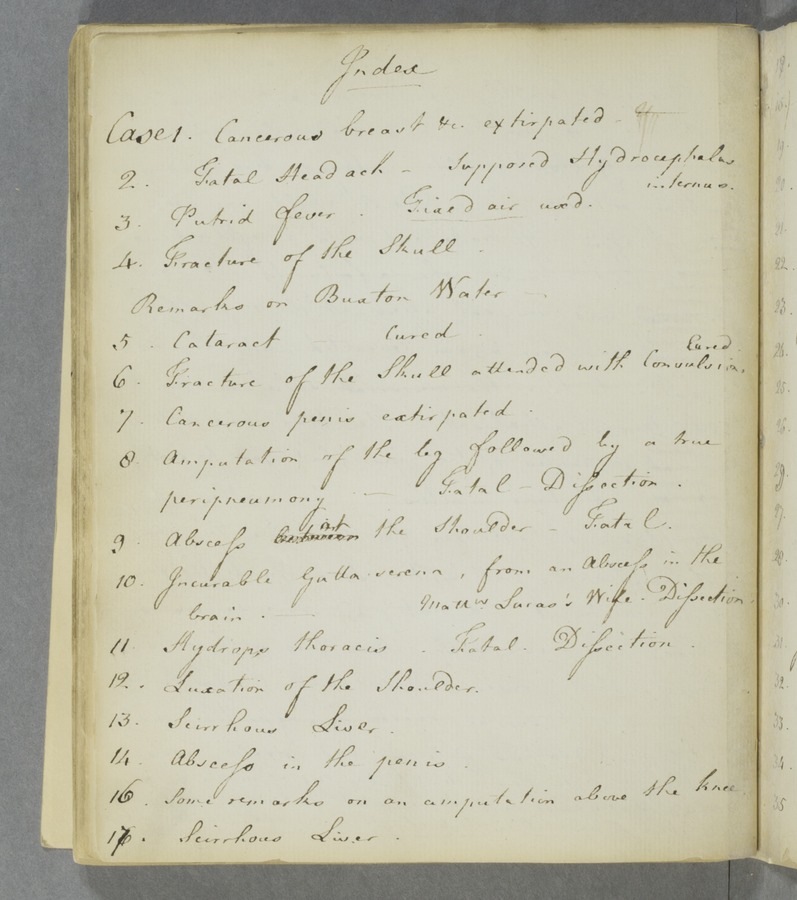 Index
Case 1. Cancerous breast &c. extirpated -
2. Fatal Headach - Supposed Hydrocephalus
internus.
3. Putrid fever. Fixed air used.
4. Fracture of the Skull -
Remarks on Buxton Water -
5. Cataract Cured.
Cured.
6. Fracture of the Skull attended with Convulsions
7. Cancerous penis extirpated.
8. Amputation of the leg followed by a true
peripneumony - Fatal - Dissection.
9. Abscess between in the Shoulder - Fatal.
10. Incurable Gutta serena, from an Abscess in the
brain. - Matt.w Lucas's Wife. Dissection.
11. Hydrops thoracis. Fatal. Dissection.
12. Luxation of the Shoulder.
13. Scirrhous Liver.
14. Abscess in the penis.
16. Some remarks on an amputation above the knee
17. Scirrhous Liver.
18.
19.
20.
21.
22.
23.
25.
28.
30.
31.
32.
33.
34.
35